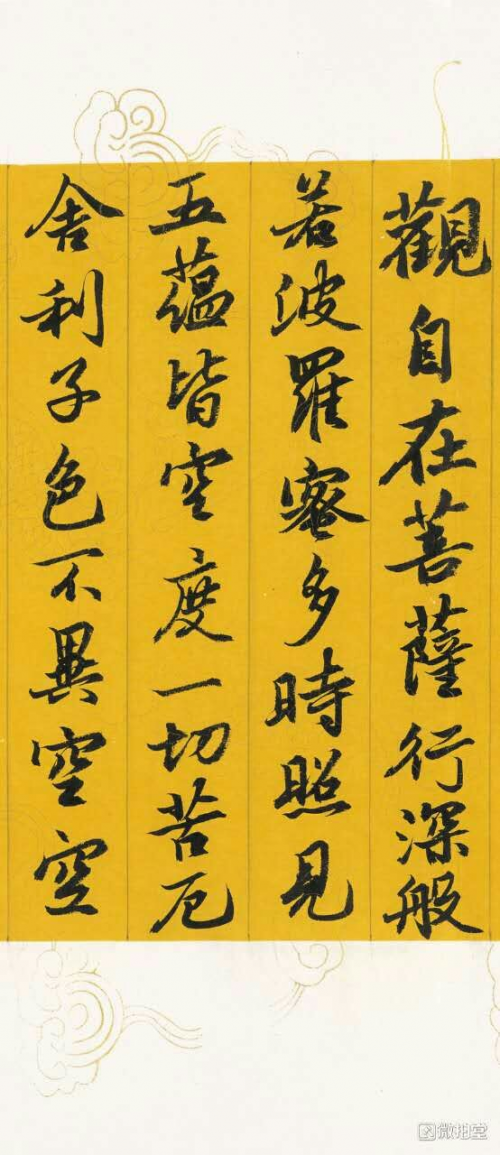 觀自在菩薩行深般
若波羅蜜多時照見
五蘊皆空度一切苦厄
舍利子色不異空空
微拍堂